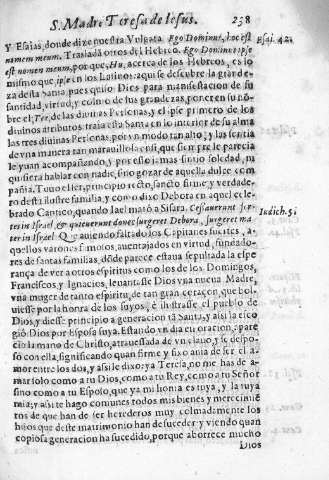 S. Madre Teresa de Iesus. 238
Y Esaias, donde dize nuestra Vulgata. Ego Dominus, hoc est Esai. 42.
nomen meum. Traslada otros del Hebreo. Ego Dominus ipse
est nomen meum, porque, Hu, acerca de los Hebreos, es lo
mismo que ipse en los Latinos: aqui se descubre la grande-
za desta Santa, pues quiso Dios para manifestacion de su
santidad, virtud, y colmo de sus grandezas, poner en su nõ-
bre el, Ter, de las diuinas Personas, y el ipse primero de los
diuinos atributos. traía esta Santa en lo interior de su alma
las tres diuinas Personas, por vn modo tan alto, y las sentia
de vna manera tan marauillosa en si, que siempre le parecia
le yuan acompañando, y por esso jamas sintio soledad, ni
quisiera hablar con nadie, sino gozar de aquella dulce com
pañia. Touo este principio recto, sancto firme, y verdade-
ro desta ilustre familia, y como dixo Debora en aquel ce-
lebrado Cantico, quando Iael matò a Sisara. Cessauerunt for- Iudich. 5.
tes in Israel, & quieuerunt donec surgeret Debora, surgeret ma-
ter in Israel. Que auiendo faltado los Capitanes fuertes, a-
quellos varones famosos, auentajados en virtud, fundado-
res de santas familias, dõde parece estaua sepultada la espe
rança de ver a otros espiritus como los de los Domingos,
Franciscos y Ignacios, leuantasse Dios vna nueua Madre,
vna muger de tanto espiritu, de tan gran coraçon, que bol-
uiesse por la honra de los suyos, è ilustrasse el pueblo de
Dios, y diesse principio a generacion tã Santa, y assi la eico
giò Dios por Esposa suya. Estando vn dia en oracion, apare
cio la mano de Christo, atrauessada de vn clauo, y se despo-
sò con ella, significando quan firme y fixo auia de ser el a-
mor entre los dos, y assi le dixo: ya Teresa, no me has de a-
mar solo como a tu Dios, como a tu Rey, como a tu Señor
sino como a tu Esposo, que ya mi honra es tuya, y la tuya
mia; y assi te hago comunes todos mis bienes y merecimiẽ
tos de que han de ser herederos muy colmadamente los
hijos que deste matrimonio han de suceder, y viendo quan
copiosa generacion ha sucedido, porque aborrece mucho
Dios